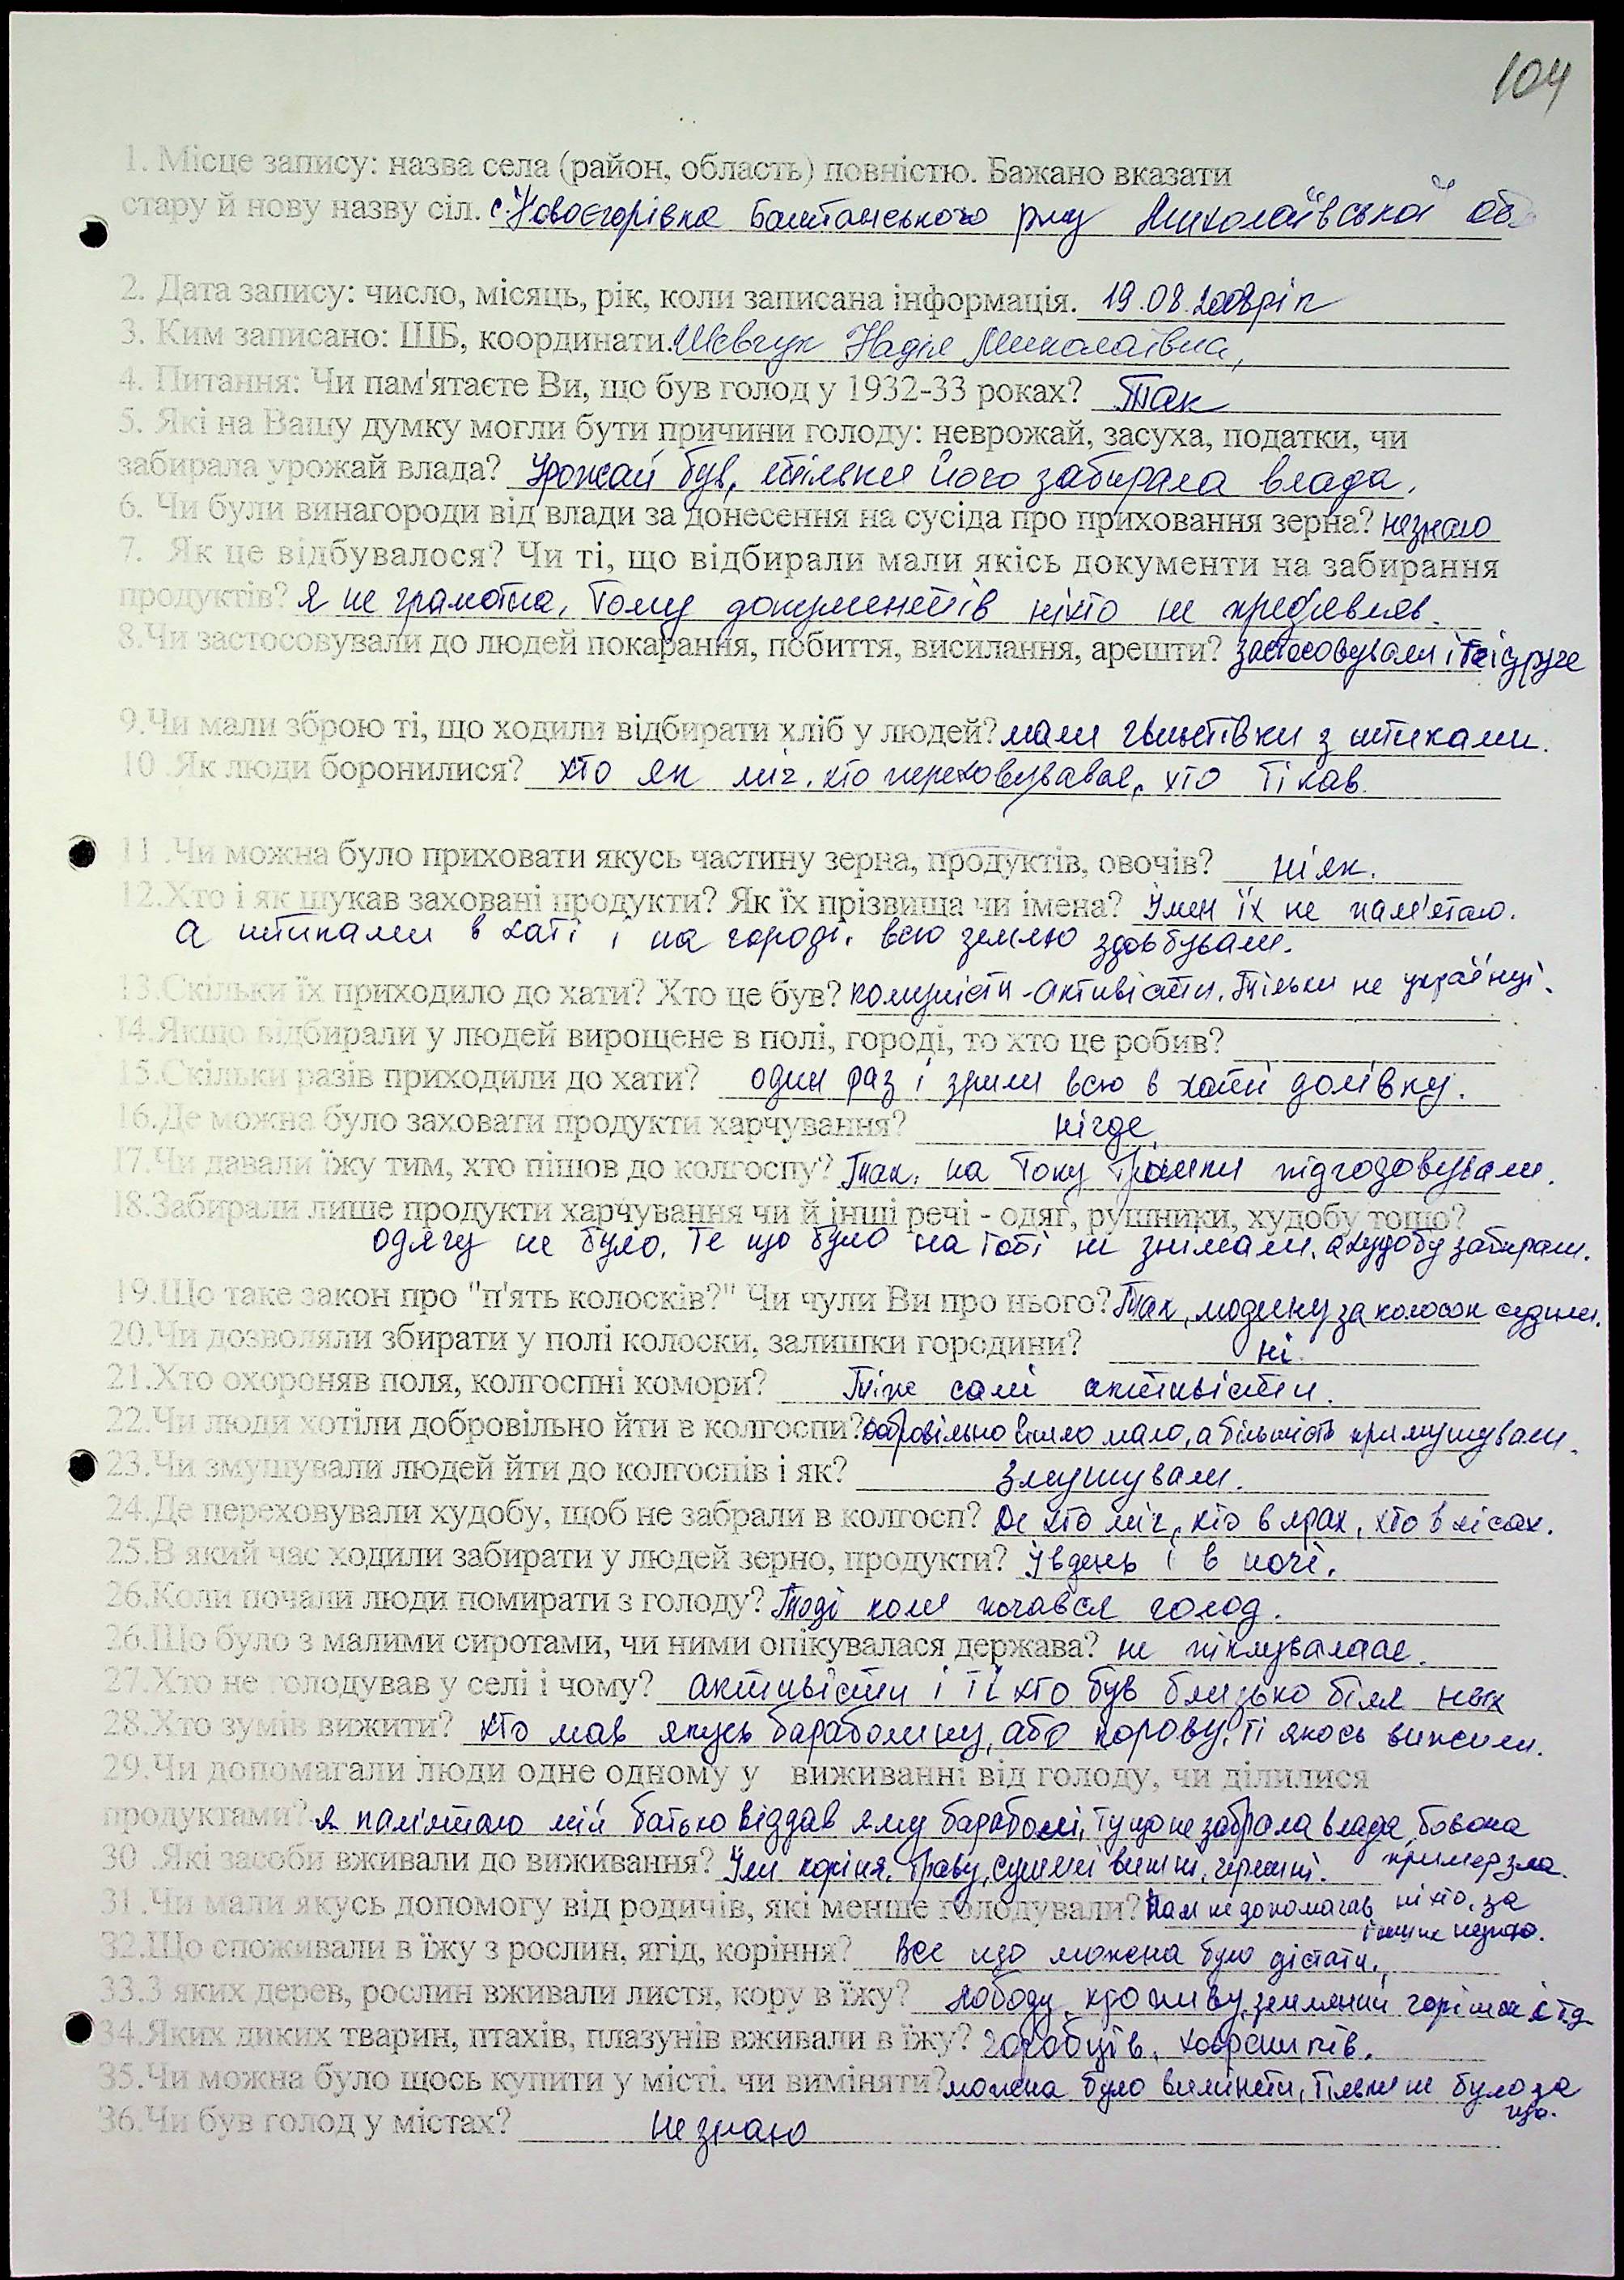 104
1. Місце запису: назва села (район, область) повністю. Бажано вказати
стару й нову назву сіл. с Новоєгорівка Баштанського р-ну Миколаївської об
2. Дата запису: число, місяць, рік, коли записана інформація. 19.08.2008рік
3. Ким записано: ПІБ, координати. Шевчук Надія Миколаївна,
4. Питання: Чи пам'ятаєте Ви, що був голод у 1932-33 роках? Так
5. Які на Вашу думку могли бути причини голоду: неврожай, засуха, податки, чи
забирала урожай влада? Урожай був, тільки його забирала влада.
6. Чи були винагороди від влади за донесення на сусіда про приховання зерна? незнаю
7. Як це відбувалося? Чи ті, що відбирали мали якісь документи на забирання
продуктів? Я не грамотна, тому документів ніхто не предявляв.
8.Чи застосовували до людей покарання, побиття, висилання, арешти? застосовували і те і друге
9.Чи мали зброю ті, що ходили відбирати хліб у людей? мали гвинтівки з штиками.
10 .Як люди боронилися? хто як міг, хто переховувався, хто тікав.
11 .Чи можна було приховати якусь частину зерна, продуктів, овочів? ніяк.
12.Хто і як шукав заховані продукти? Як їх прізвища чи імена? Імен їх не пам'ятаю.
а штиками в хаті і на городі, всю землю здовбували.
13.Скільки їх приходило до хати? Хто це був? комуністи-активісти, тільки не українці.
14.Якщо відбирали у людей вирощене в полі, городі, то хто це робив?
15.Скільки разів приходили до хати? один раз і зрили всю в хаті долівку.
16.Де можна було заховати продукти харчування? нігде.
17.Чи давали їжу тим, хто пішов до колгоспу? Так, на току трошки підгодовували.
18.Забирали лише продукти харчування чи й інші речі - одяг, рушники, худобу тощо?
одягу не було. Те що було на тобі не знімали, а худобу забирали.
19.Що таке закон про "п'ять колосків?" Чи чули Ви про нього? Так, людину за колосок судили.
20.Чи дозволяли збирати у полі колоски, залишки городини? ні.
21.Хто охороняв поля, колгоспні комори? Тіже самі активісти.
22.Чи люди хотіли добровільно йти в колгоспи? добровільно йшло мало, а більшість примушували.
23.Чи змушували людей йти до колгоспів і як? Змушували.
24.Де переховували худобу, щоб не забрали в колгосп? Де хто міг, хто в ярах, хто в лісах.
25.В який час ходили забирати у людей зерно, продукти? Івдень і в ночі.
26.Коли почали люди помирати з голоду? Тоді коли почався голод.
26.Що було з малими сиротами, чи ними опікувалася держава? не піклувалася.
27.Хто не голодував у селі і чому? активісти і ті хто був близько біля них
28.Хто зумів вижити? хто мав якусь бараболину, або корову, ті якось вижили.
29.Чи допомагали люди одне одному у виживанні від голоду, чи ділилися
продуктами? я пам'ятаю мій батько віддав яму бараболі, ту що не забрала влада, бо вона
примерзла.
30 .Які засоби вживали до виживання? Їли коріня, траву, сушені вишні, черешні.
31.Чи мали якусь допомогу від родичів, які менше голодували? Нам не допомагав ніхто, за
інших незнаю.
32.Що споживали в їжу з рослин, ягід, коріння? Все що можна було дістати.
33.З яких дерев, рослин вживали листя, кору в їжу? лободу, кропиву, земляний горішок і т.д.
34.Яких диких тварин, птахів, плазунів вживали в їжу? горобців, ховрашків.
35.Чи можна було щось купити у місті, чи виміняти? можна було виміняти, тільки не було за
що.
36.Чи був голод у містах? не знаю